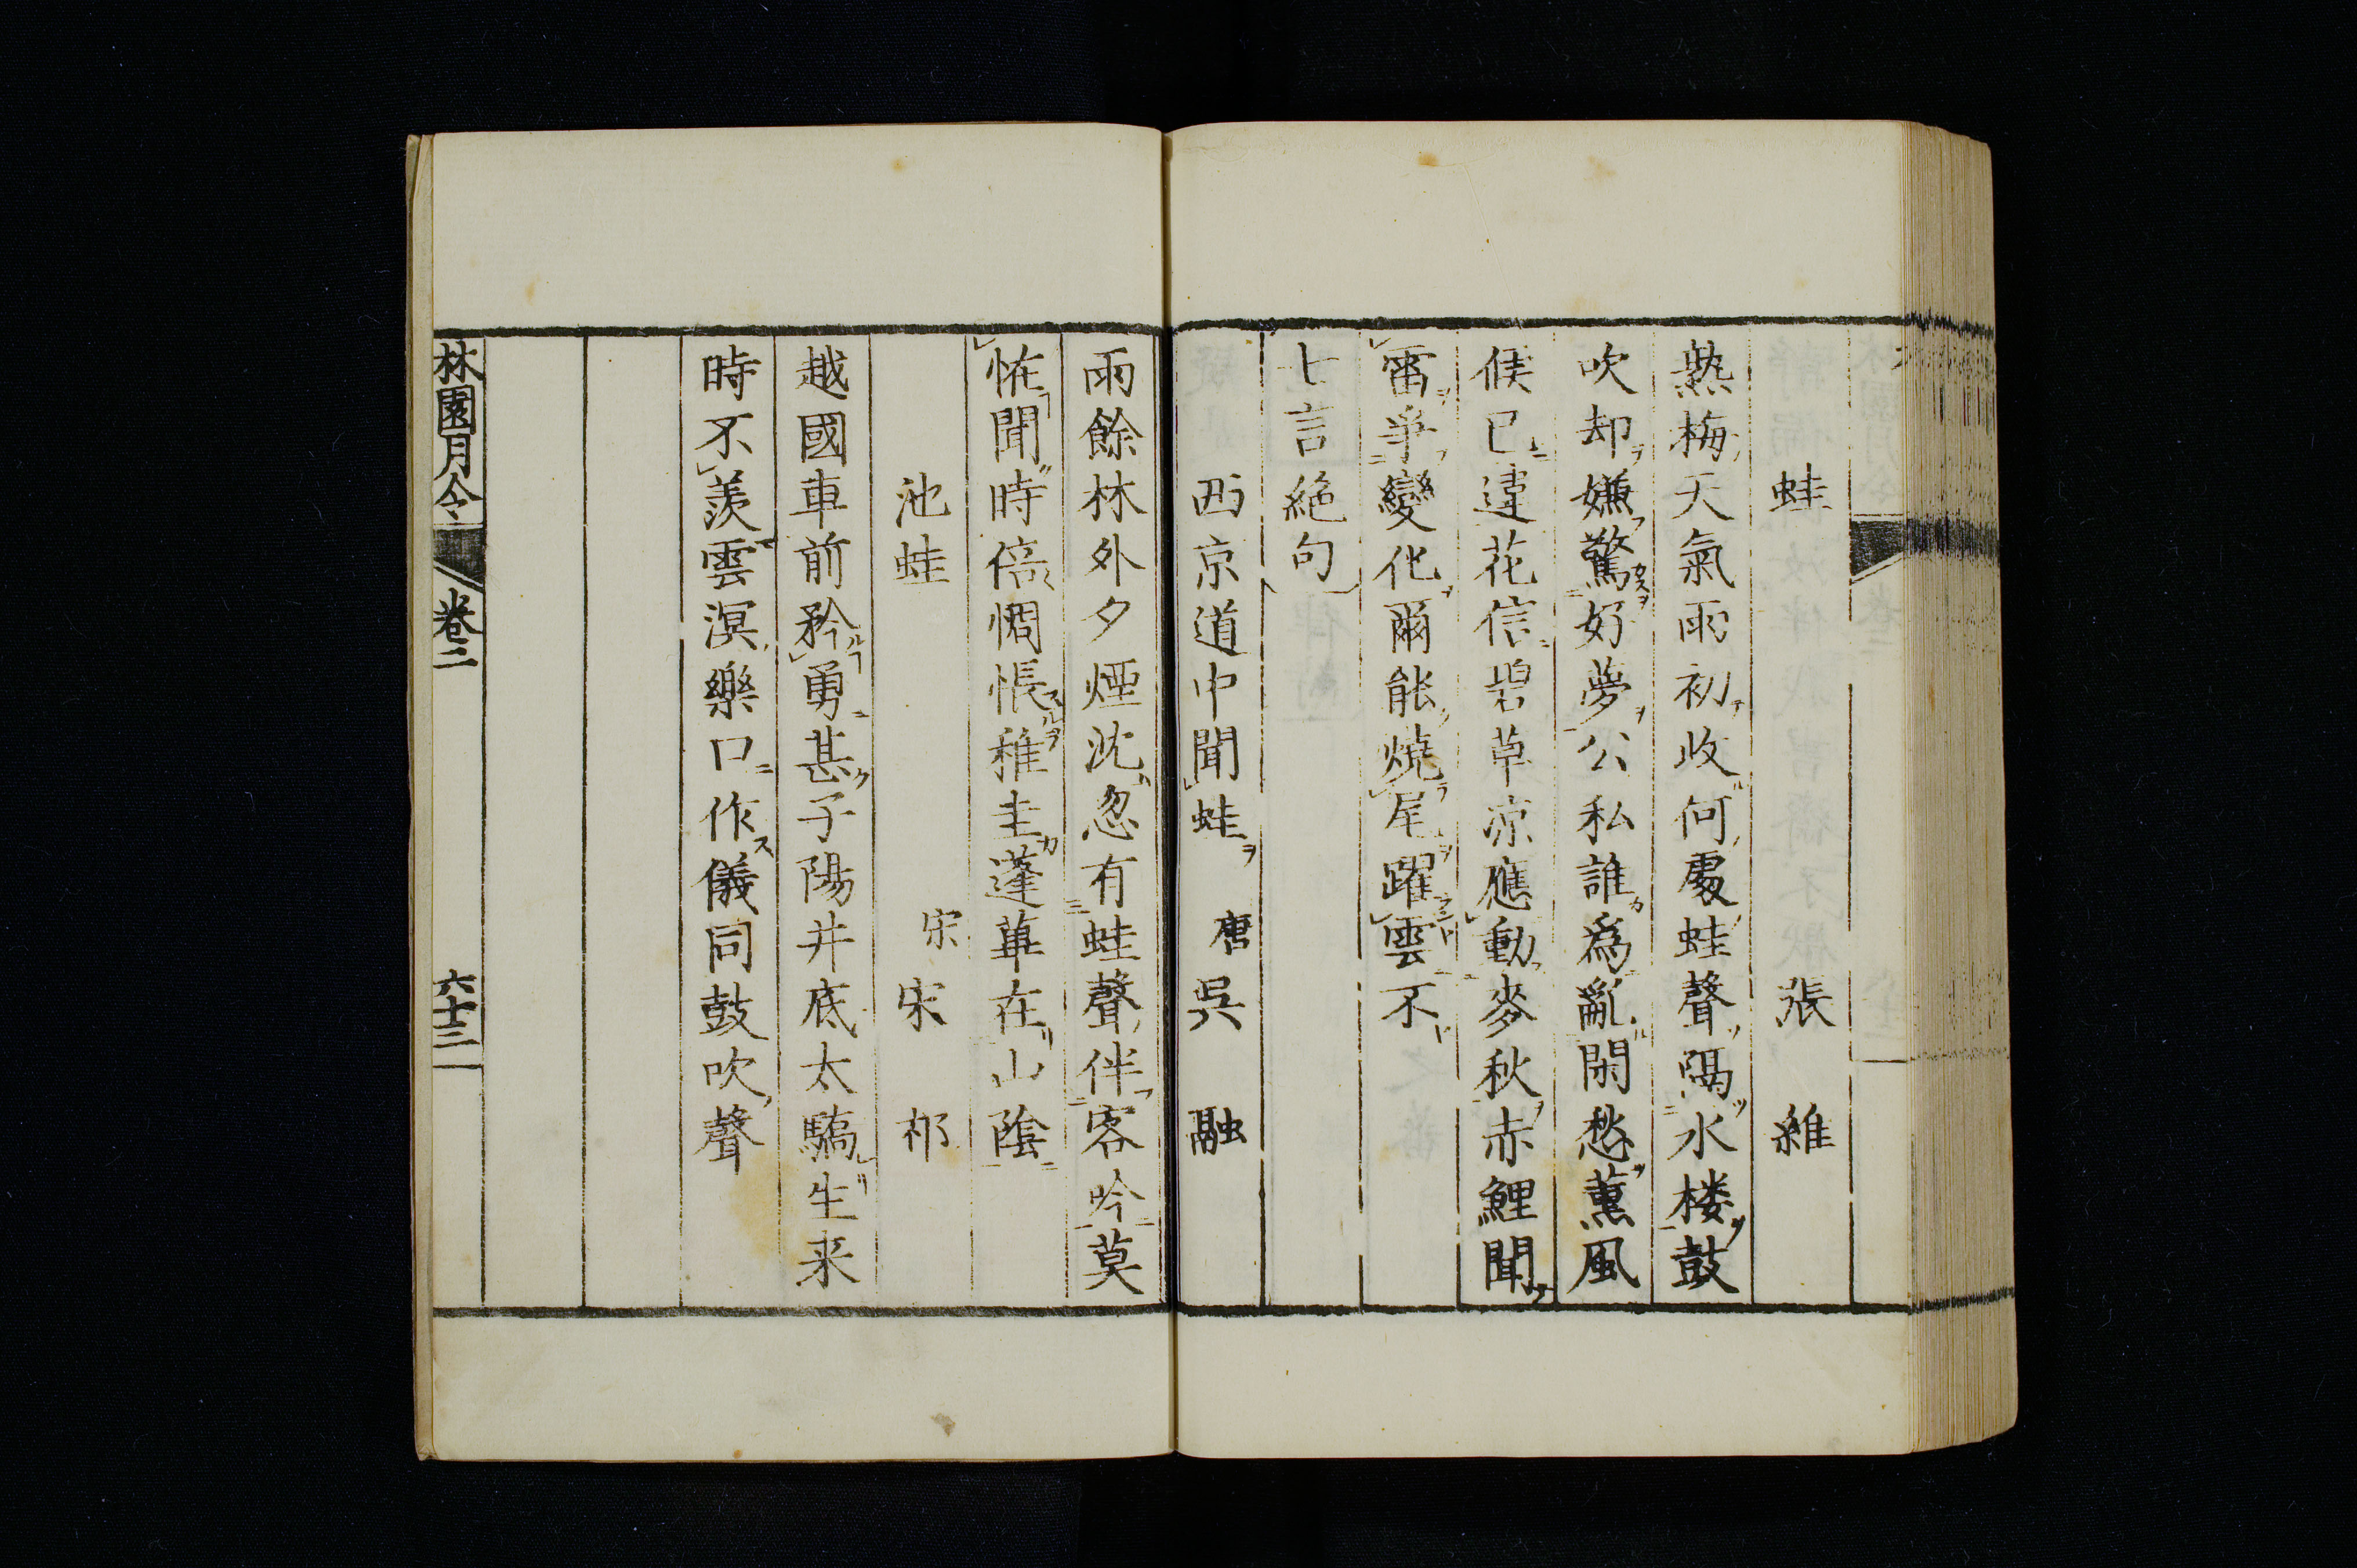 蛙　張維
熱梅天氣雨初收何處蛙聲隔水楼鼓
吹却嫌驚好夢公私誰爲亂閑愁薫風
候已違花信碧草凉應動麥秋赤鯉聞
雷爭變化爾能燒尾躍雲不
七言絶句
西京道中聞蛙　唐 吳融
雨餘林外夕煙沈忽有蛙聲伴客吟莫
怪聞時倍惆悵稚圭蓬蓽在山陰
池蛙　宋 宋祁
越國車前矜勇甚子陽井底太驕生来
時不羨雲溟樂口作儀同鼓吹聲
林園月令　卷二　六十三